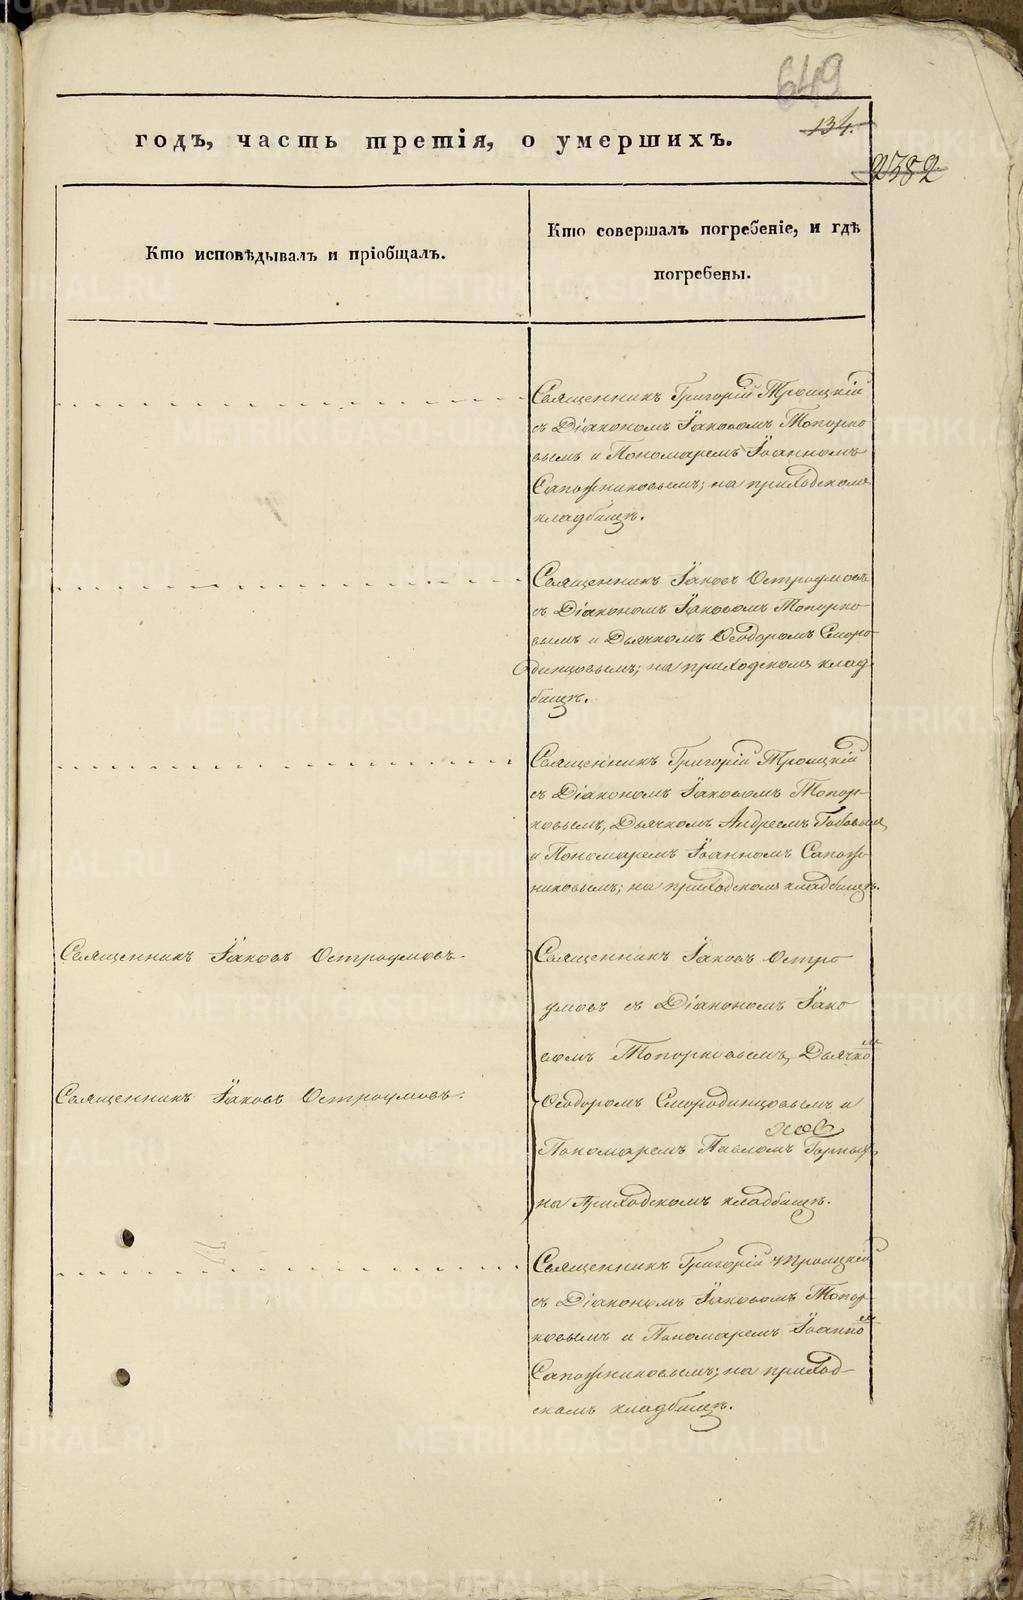 649
134.
годъ, часть третія, о умершихъ.
2382
Кто исповѣдывалъ и пріобщалъ.
Кто совершалъ погребеніе, и гдѣ
погребены.
Священникъ Григорій Троицкій
съ Діакономъ Іаковомъ Топорко
вымъ и Пономаремъ Іоанномъ
Сапожниковымъ; на приходскомъ
кладбищѣ.
Священникъ Іаковъ Остроумовъ
съ Діакономъ Іаковомъ Топорко
вымъ и Дьячкомъ Ѳеодоромъ Сморо
динцовымъ; на приходскомъ клад
бищѣ.
Священникъ Григорій Троицкій
съ Діакономъ Іаковомъ Топор-
ковымъ, Дьячкомъ Андреемъ
и Пономаремъ Іоанномъ Сапож-
никовымъ; на приходскомъ кладбищѣ.
Священникъ Іаковъ Остроумовъ.
Священникъ Іаковъ Остро
умовъ съ Діакономъ Іако
вомъ Топорковымъ, Дьячкомъ
Священникъ Іаковъ Остроумовъ.
Ѳеодоромъ Смородинцовымъ и
Пономаремъ Павломъ
на Приходскомъ кладбищѣ.
Священникъ Григорій Троицкій
съ Діакономъ Іаковомъ Топор-
ковымъ и Пономаремъ Іоанномъ
Сапожниковымъ; на приход-
скомъ кладбищѣ.
METRIKI.GASO-URAL.RU